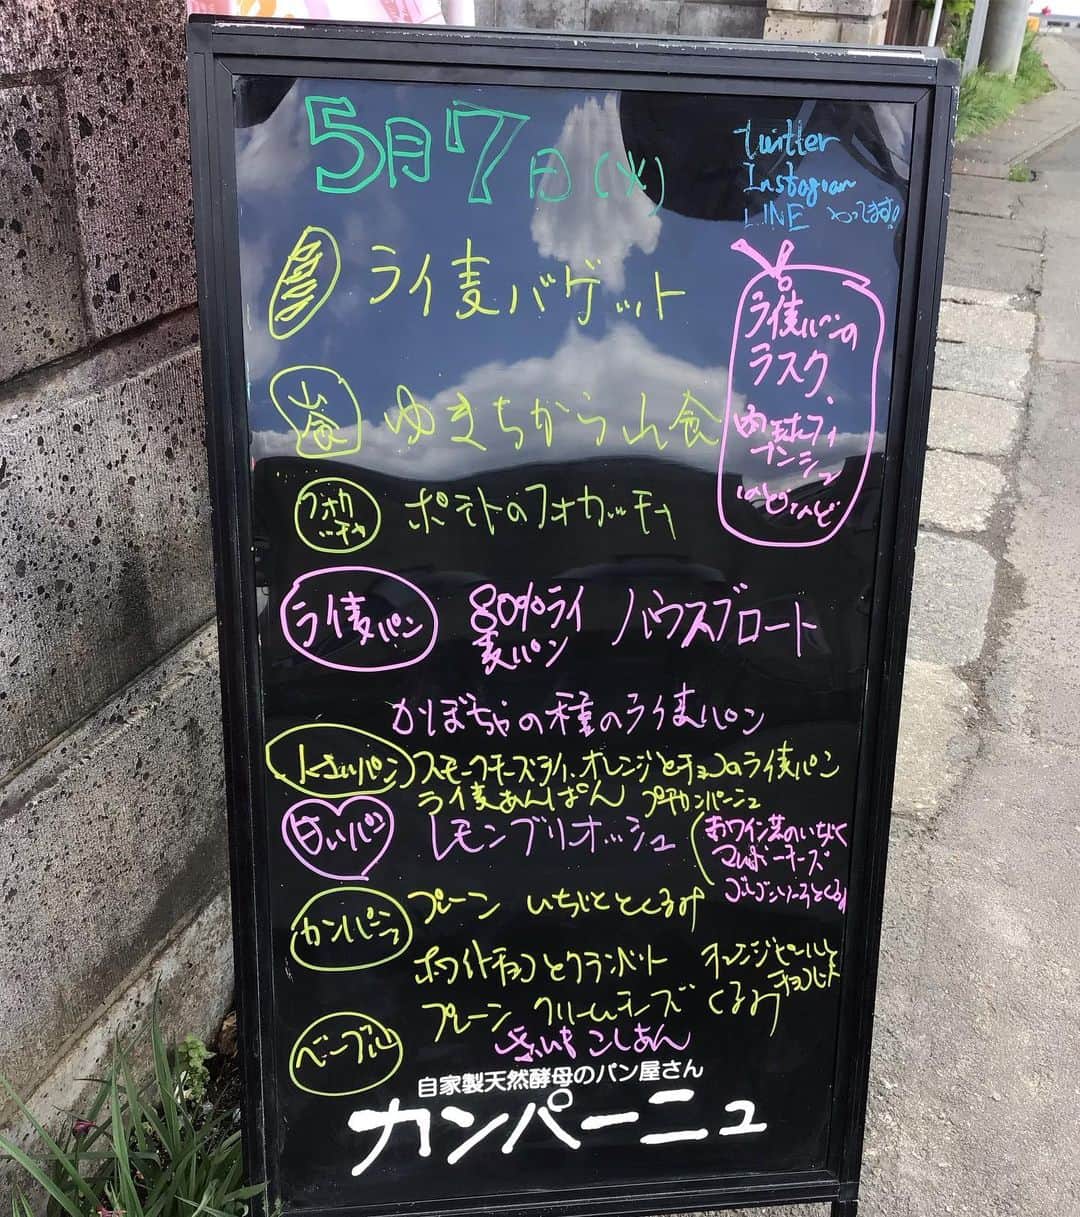 5月7日(火)
twitter
Instagram
LINE やってます!
ライ麦バゲット
ライ麦パンの
ラスク、
肉球フィ
ナンシェ
などなど
山食
ゆきちから山食
フォカ
ッチャ
ポテトのフォカッチャ
ライ麦パン
80%ライ
麦パン
ハウスブロート
かぼちゃの種のライ麦パン
小さいパン
スモークチーズライ、オレンジとチョコのライ麦パン
ライ麦あんぱん プチカンパーニュ
甘いパン
レモンブリオッシュ
チーズ
カンパーニュ
プレーン いちじくとくるみ
ホワイトチョコとクランベリー オレンジピールと
チョコ
ベーグル
プレーン クリームチーズ くるみ
こしあん
自家製天然酵母のパン屋さん
カンパーニュ